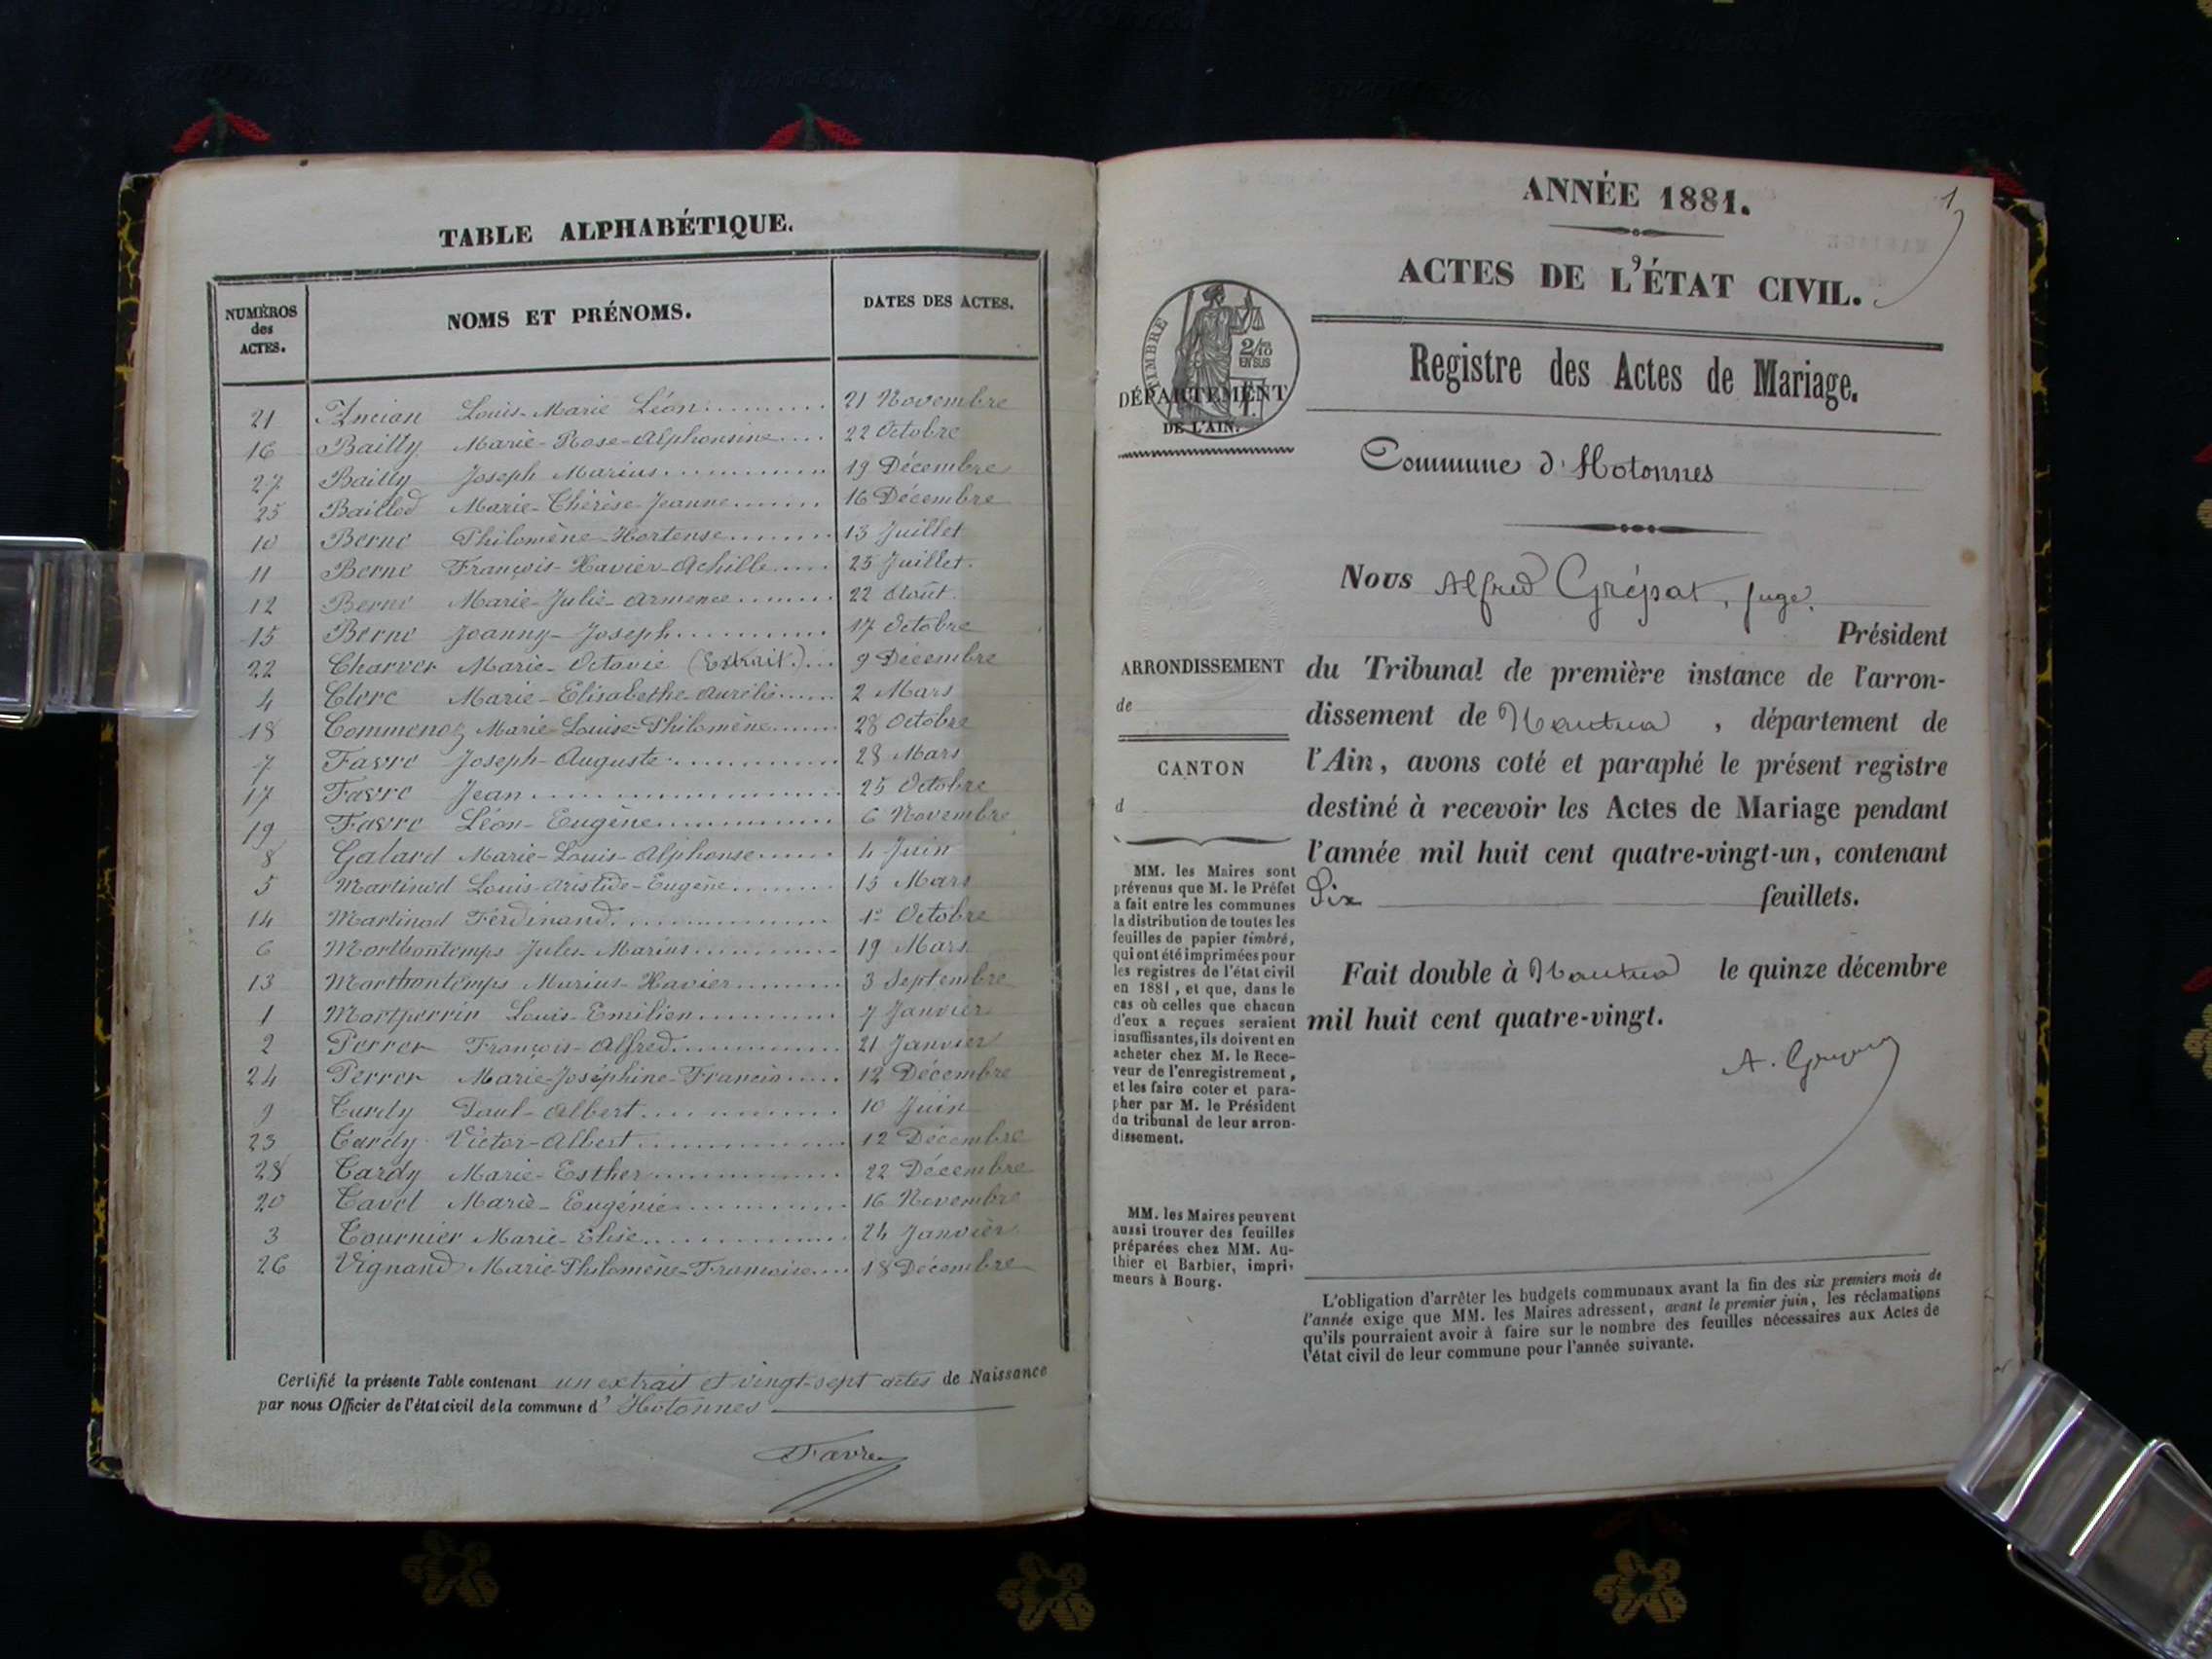 TABLE ALPHABÉTIQUE.
NUMÉROS des ACTES.
NOMS ET PRÉNOMS.
DATES DES ACTES.
21 Ancian Louis-Marie Léon 21 Novembre
16 Bailly Marie-Rose-Alphonsine 22 Octobre
27 Bailly Joseph Marius 19 Décembre
25 Baillod Marie-Thérèse-Jeanne 16 Décembre
10 Berne Philomène-Hortense 13 Juillet
11 Berne François-Xavier-Achille 25 Juillet.
12 Berne Marie-Julie-Armence 22 Août.
15 Berne Joanny-Joseph 17 Octobre
22 Charvet Marie-Octavie (Extrait.) 9 Décembre
4 Clerc Marie-Elisabethe-Aurélie 2 Mars
18 Commenoz Marie-Louise-Philomène 28 Octobre
7 Favre Joseph-Auguste 28 Mars
17 Favre Jean 25 Octobre
19 Favre Léon-Eugène 6 Novembre
8 Galard Marie-Louis-Alphonse 4 Juin
5 Martinod Louis-Aristide-Eugène 15 Mars
14 Martinod Ferdinand 1er Octobre
6 Morthontemps Jules-Marius 19 Mars
13 Morthontemps Marius-Xavier 3 Septembre
1 Montperrin Louis-Emilien 7 Janvier
2 Perret François-Alfred 21 Janvier
24 Perret Marie-Joséphine-Francia 12 Décembre
9 Tardy Paul-Albert 10 Juin
23 Tardy Victor-Albert 12 Décembre
28 Tardy Marie-Esther 22 Décembre
20 Tavel Marie-Eugénie 16 Novembre
3 Tournier Marie-Elise 24 Janvier
26 Vignand Marie-Philomène-Françoise 18 Décembre
Certifié la présente Table contenant un extrait et vingt-sept actes de Naissance
par nous Officier de l'état civil de la commune d' Hotonnes
Favre
1
ANNÉE 1881.
ACTES DE L'ÉTAT CIVIL.
TIMBRE
2/10
EN SUS
DÉPARTEMENT
DE L'AIN.
Registre des Actes de Mariage.
Commune d'Hotonnes
Nous Alfred Grépat, juge.
Président
du Tribunal de première instance de l'arron-
dissement de Nantua , département de
l'Ain, avons coté et paraphé le présent registre
destiné à recevoir les Actes de Mariage pendant
l'année mil huit cent quatre-vingt-un, contenant
Dix feuillets.
Fait double à Nantua le quinze décembre
mil huit cent quatre-vingt.
ARRONDISSEMENT
de
CANTON
d
MM. les Maires sont
prévenus que M. le Préfet
a fait entre les communes
la distribution de toutes les
feuilles de papier timbré,
qui ont été imprimées pour
les registres de l'état civil
en 1881, et que, dans le
cas où celles que chacun
d'eux a reçues seraient
insuffisantes, ils doivent en
acheter chez M. le Rece-
veur de l'enregistrement,
et les faire coter et para-
pher par M. le Président
du tribunal de leur arron-
dissement.
MM. les Maires peuvent
aussi trouver des feuilles
préparées chez MM. Au-
thier et Barbier, impri-
meurs à Bourg.
L'obligation d'arrêter les budgets communaux avant la fin des six premiers mois de
l'année exige que MM. les Maires adressent, avant le premier juin, les réclamations
qu'ils pourraient avoir à faire sur le nombre des feuilles nécessaires aux Actes de
l'état civil de leur commune pour l'année suivante.